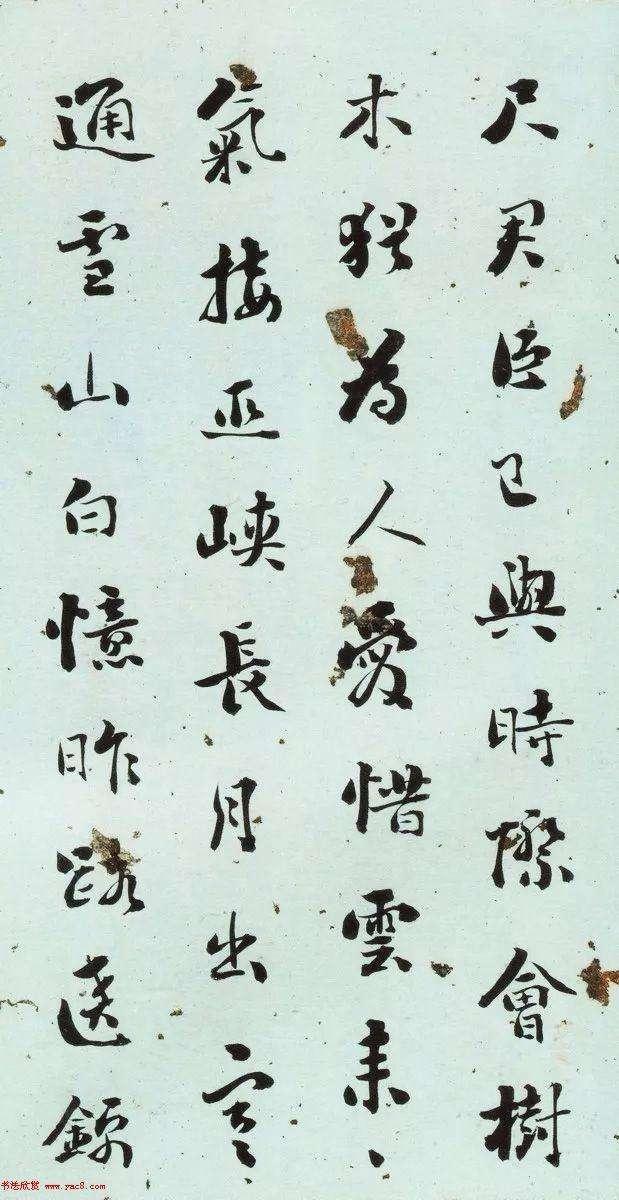 尺君臣已與時際會樹
木猶為人愛惜雲来、
氣接巫峽長月出寒
通雪山白憶昨路遶錦
书法欣赏 www.yac8.com